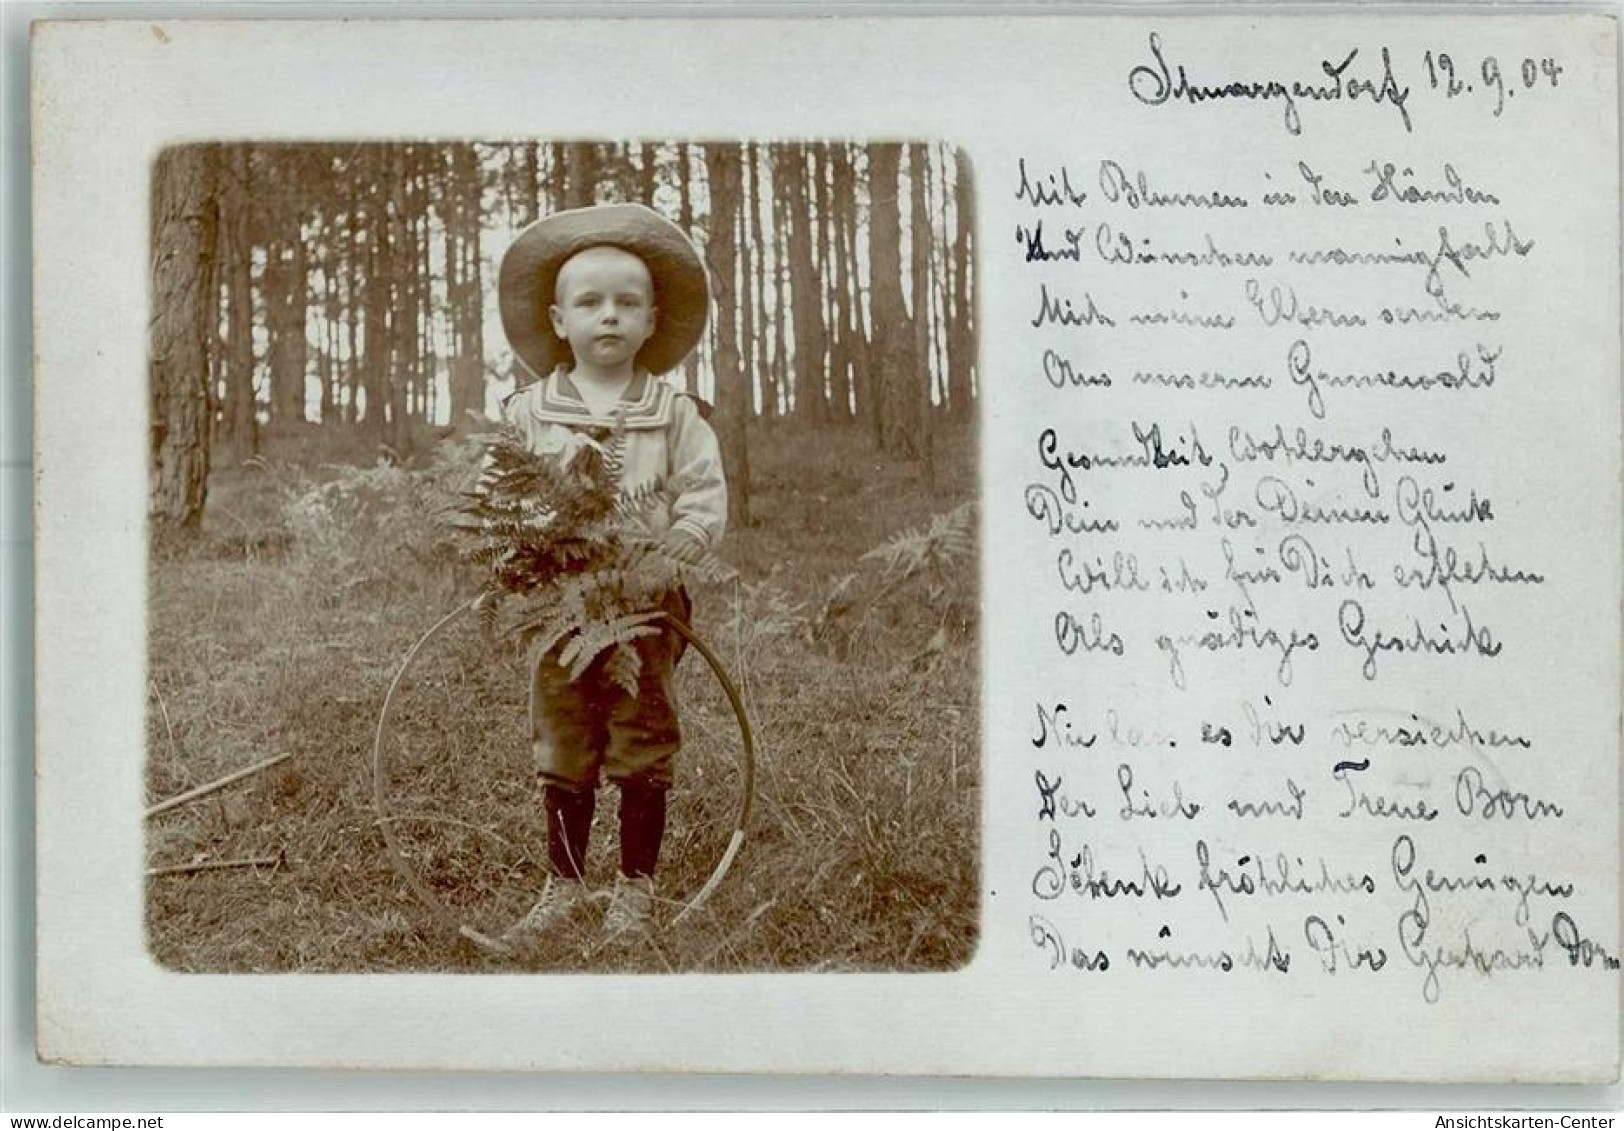 Schmargendorf 12.9.04
Mit Blumen in den Händen
Und Wünschen mannigfalt
Mich meine Eltern senden
Aus unserm Grunewald
Gesundheit, Wohlergehen
Dein und der Deinen Glück
Will ich für Dich erflehen
Als gnädiges Geschick
Nie las. es dir versiechen
Der Lieb und Treue Born
Schenk fröhliches Genügen
Das wünscht Dir Gerhard Dorn
AnsichtsKarten-Center